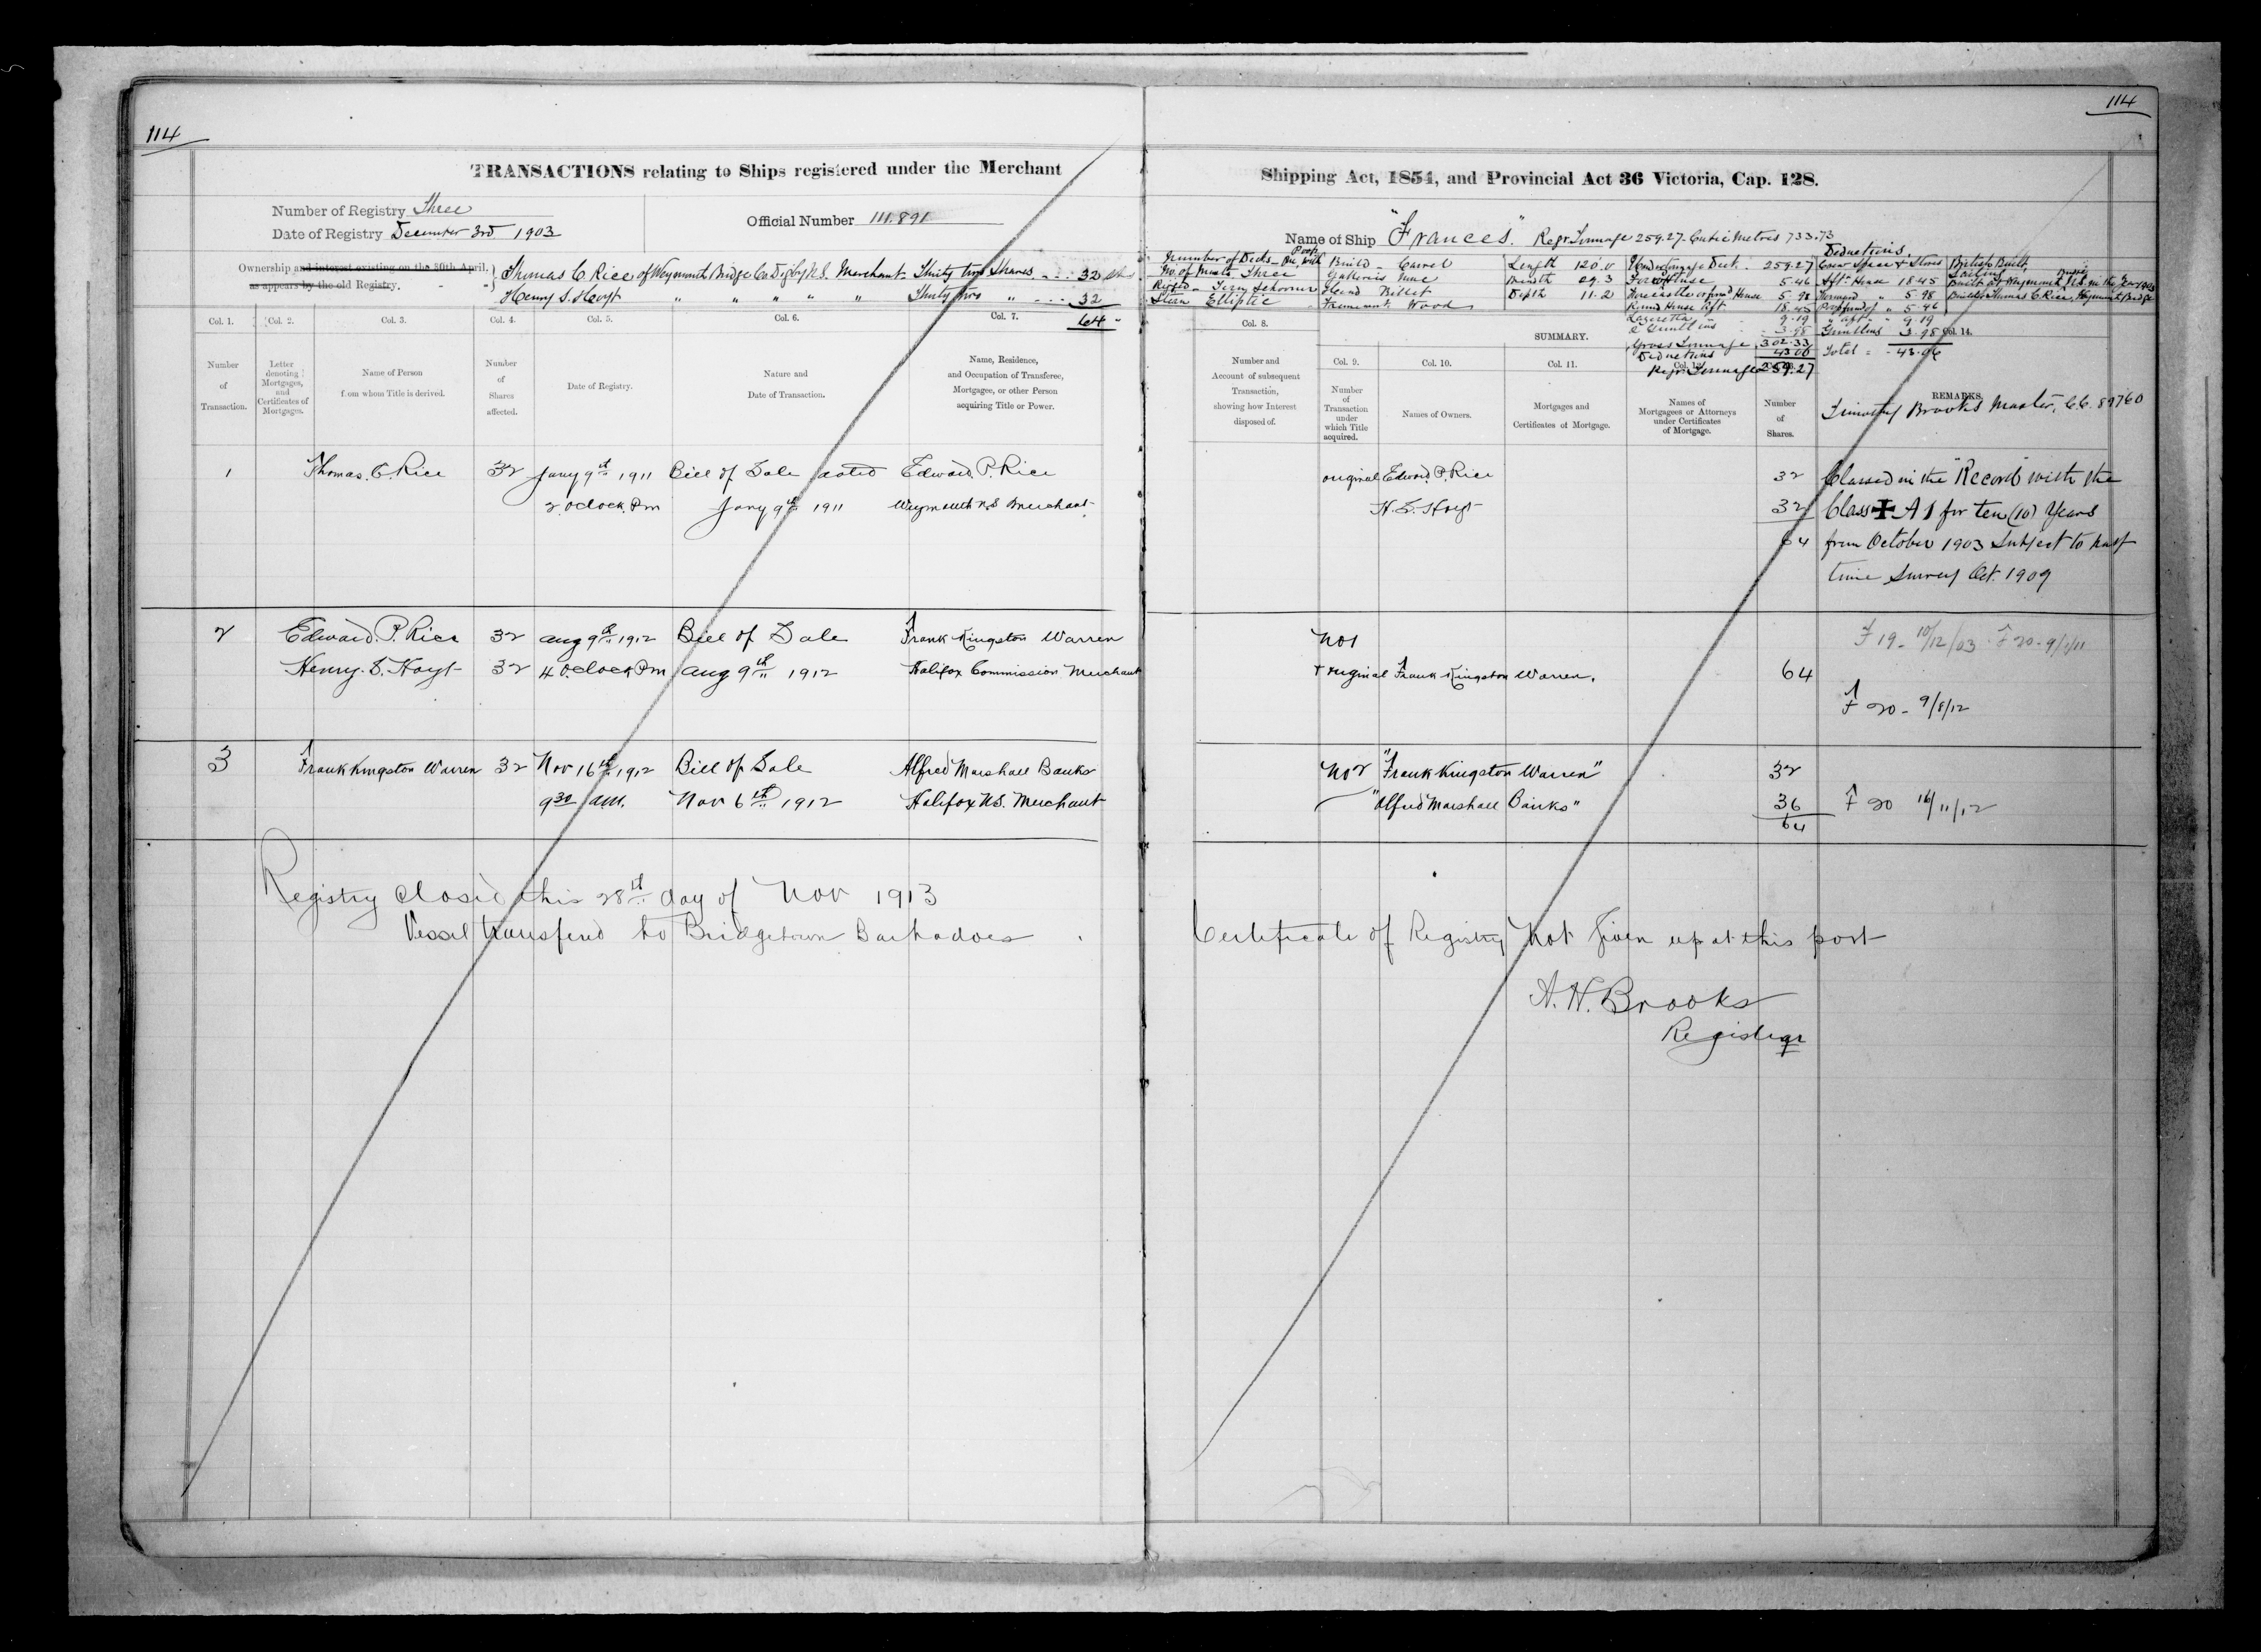 114
114
TRANSACTIONS relating to Ships registered under the Merchant
Shipping Act, 1854, and Provincial Act 36 Victoria, Cap. 128.
Number of Registry Three
Date of Registry December 3rd 1903
Official Number 111.891
Name of Ship "Frances." Regr Tonnage 259.27 - Cubic Metres 733.73
Ownership and interest existing on the 30th April,
as appears by the old Registry.
Thomas C Rice of Weymouth Bridge Co Digby N.S. Merchant - Thirty two Shares - - - 32
Henry S. Hoyt " " " " " Thirty two " - - - 32
64 "
Number of Decks - One, with Poop
No. of Masts Three
Rigged - Schooner
Stern Elliptic
Build - Carvel
Galleries None
Head Billet
Framework Wood
Length 120.0
Breadth 29.3
Depth 11.2
Under Tonnage Deck - 259.27
5.46
House 5.98
Round House Aft 18.45
Lazerette 9.19
3.98
Gross Tonnage 302.33
Deductions 43.06
Regr Tonnage 259.27
Deductions.
Crew Space & Stores
Aft House 18.45
Forward " 5.98
" 5.46
" aft " 9.19
3.98
Total = - 43.06
British Built,
Sailing
Built at Weymouth Bridge
Builder Thomas C Rice, Weymouth Bridge
Col. 1.
Col. 2.
Col. 3.
Col. 4.
Col. 5.
Col. 6.
Col. 7.
Col. 8.
SUMMARY.
Col. 9.
Col. 10.
Col. 11.
Col. 14.
Number of Transaction.
Letter denoting Mortgages, and Certificates of Mortgages.
Name of Person from whom Title is derived.
Number of Shares affected.
Date of Registry.
Nature and Date of Transaction.
Name, Residence, and Occupation of Transferee, Mortgagee, or other Person acquiring Title or Power.
Number and Account of subsequent Transaction, showing how Interest disposed of.
Number of Transaction under which Title acquired.
Names of Owners.
Mortgages and Certificates of Mortgage.
Names of Mortgagees or Attorneys under Certificates of Mortgage.
Number of Shares.
REMARKS.
Timothy Brooks Master, C.C.
1 Thomas. C. Rice 32 Jany 9th 1911 Bill of Sale dated Edward. P. Rice
2. Oclock. Pm Jany 9th 1911 Weymouth N.S Merchant.
original Edward. P. Rice 32
H. S. Hoyt 32
64
Classed in the "Record" with the
Class ✠ A 1 for ten (10) Years
from October 1903 Subject to half
time Survey Oct. 1909
2 Edward. P. Rice 32 Aug 9th 1912 Bill of Sale Frank Kingston Warren
Henry. S. Hoyt 32 4 Oclock Pm Aug 9th 1912 Halifax Commission Merchant
No 1
+ original Frank Kingston Warren. 64
F 19 - 10/12/03 F 20 - 9/1/11
F 20 - 9/8/12
3 Frank Kingston Warren 32 Nov 16th 1912 Bill of Sale Alfred Marshall Banks
9 30 am. Nov 6th 1912 Halifax N.S. Merchant
No 2 "Frank Kingston Warren" 32
"Alfred Marshall Banks" 36
64
F 20 16/11/12
Registry Closed this 28th day of Nov 1913
Vessel transfered to Bridgetown Barbadoes
Certificate of Registry Not Given up at this port
A. H. Brooks
Registrar